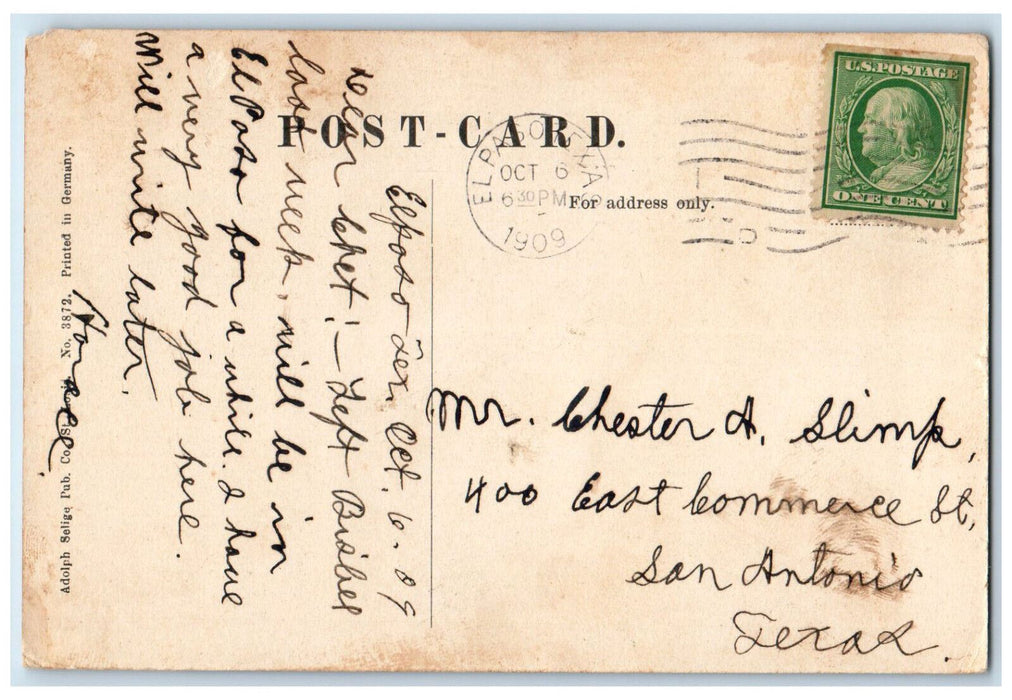 POST-CARD.
For address only.
U.S. POSTAGE
ONE CENT
EL PASO
OCT 6
6 30 PM
1909
Elpaso Tex, Oct. 6. 09
Dear Chet! — Left Bisbee
last week, will be in
El Paso for a while. I have
a very good job here.
Will write later.
Horace.
Mr. Chester A. Slimp,
400 East Commerce St,
San Antonio
Texas.
Adolph Selige Pub. Co. St. Louis No. 3872. Printed in Germany.